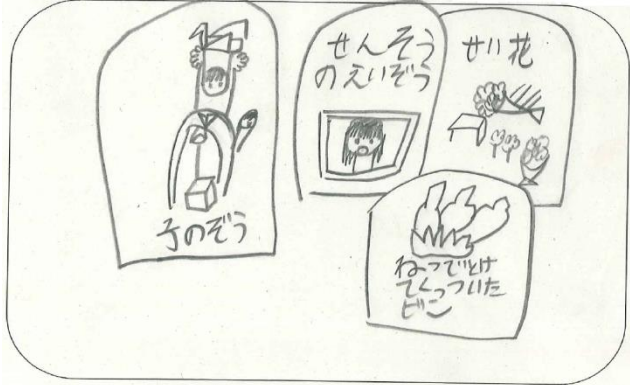 子のぞう
せんそう
のえいぞう
せい花
ねつでとけ
てくっついた
ビン